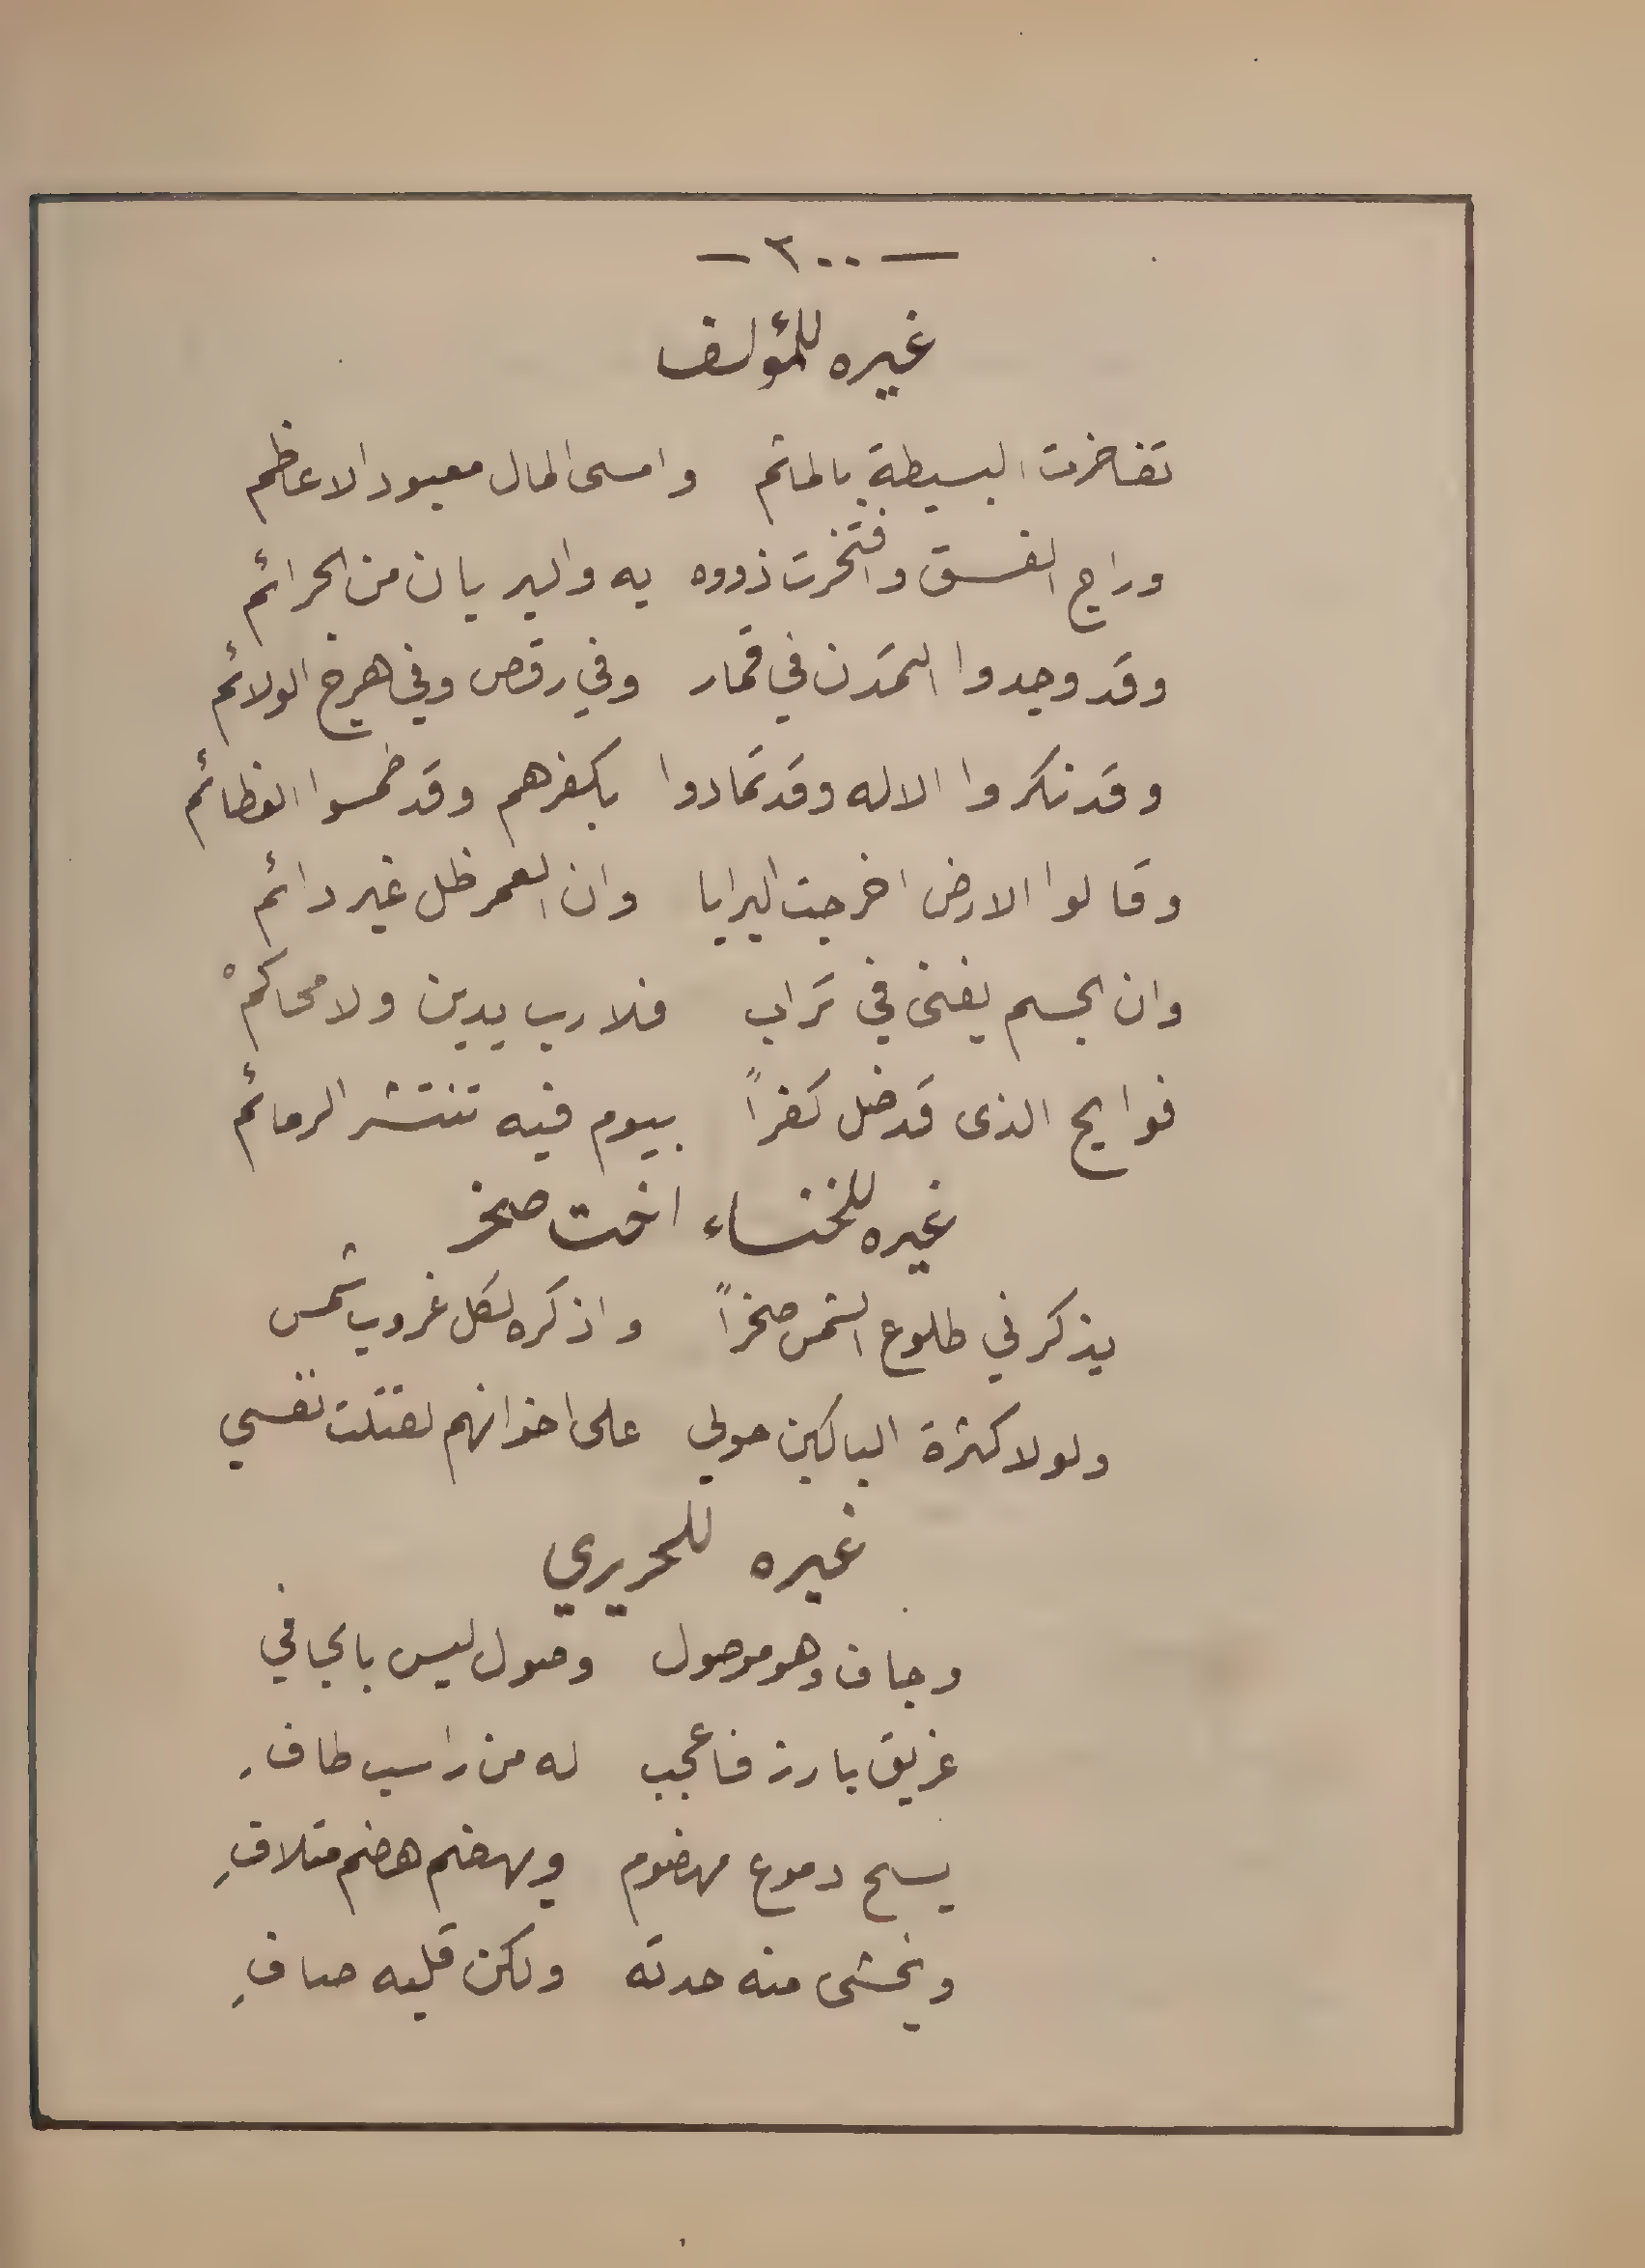 — ٣٠٠ —
غيره للمؤلف
تفاخرت البسيطة بالمآتم وامسى المال معبود الاعاظم
وراج الفسق وافتخرت ذووه به والبر بان من الجرائم
وقد وجدوا التمدن في قمار وفي رقص وفي هرج الولائم
وقد نكروا الاله وقد تمادوا بكفرهم وقد طمسوا الفظائم
وقالوا الارض اخرجت البرايا وان العمر ظل غير دائم
وان الجسم يفنى في تراب فلا رب يدين ولا محاكمْ
فوايح الذى قد ضل كفراً بيوم فيه تنتشر الرمائم
غيره للخنساء اخت صخر
يذكرني طلوع الشمس صخراً واذكره لكل غروب شمس
ولولا كثرة الباكين حولي على اخوانهم لقتلت نفسي
غيره للحريري
وجاف وهو موصول وصول ليس بالجافي
غريق بارز فاعجب له من راسب طافِ
يسح دموع مهضوم ويهضم هضم متلافِ
ويخشى منه حدته ولكن قلبه صافِ